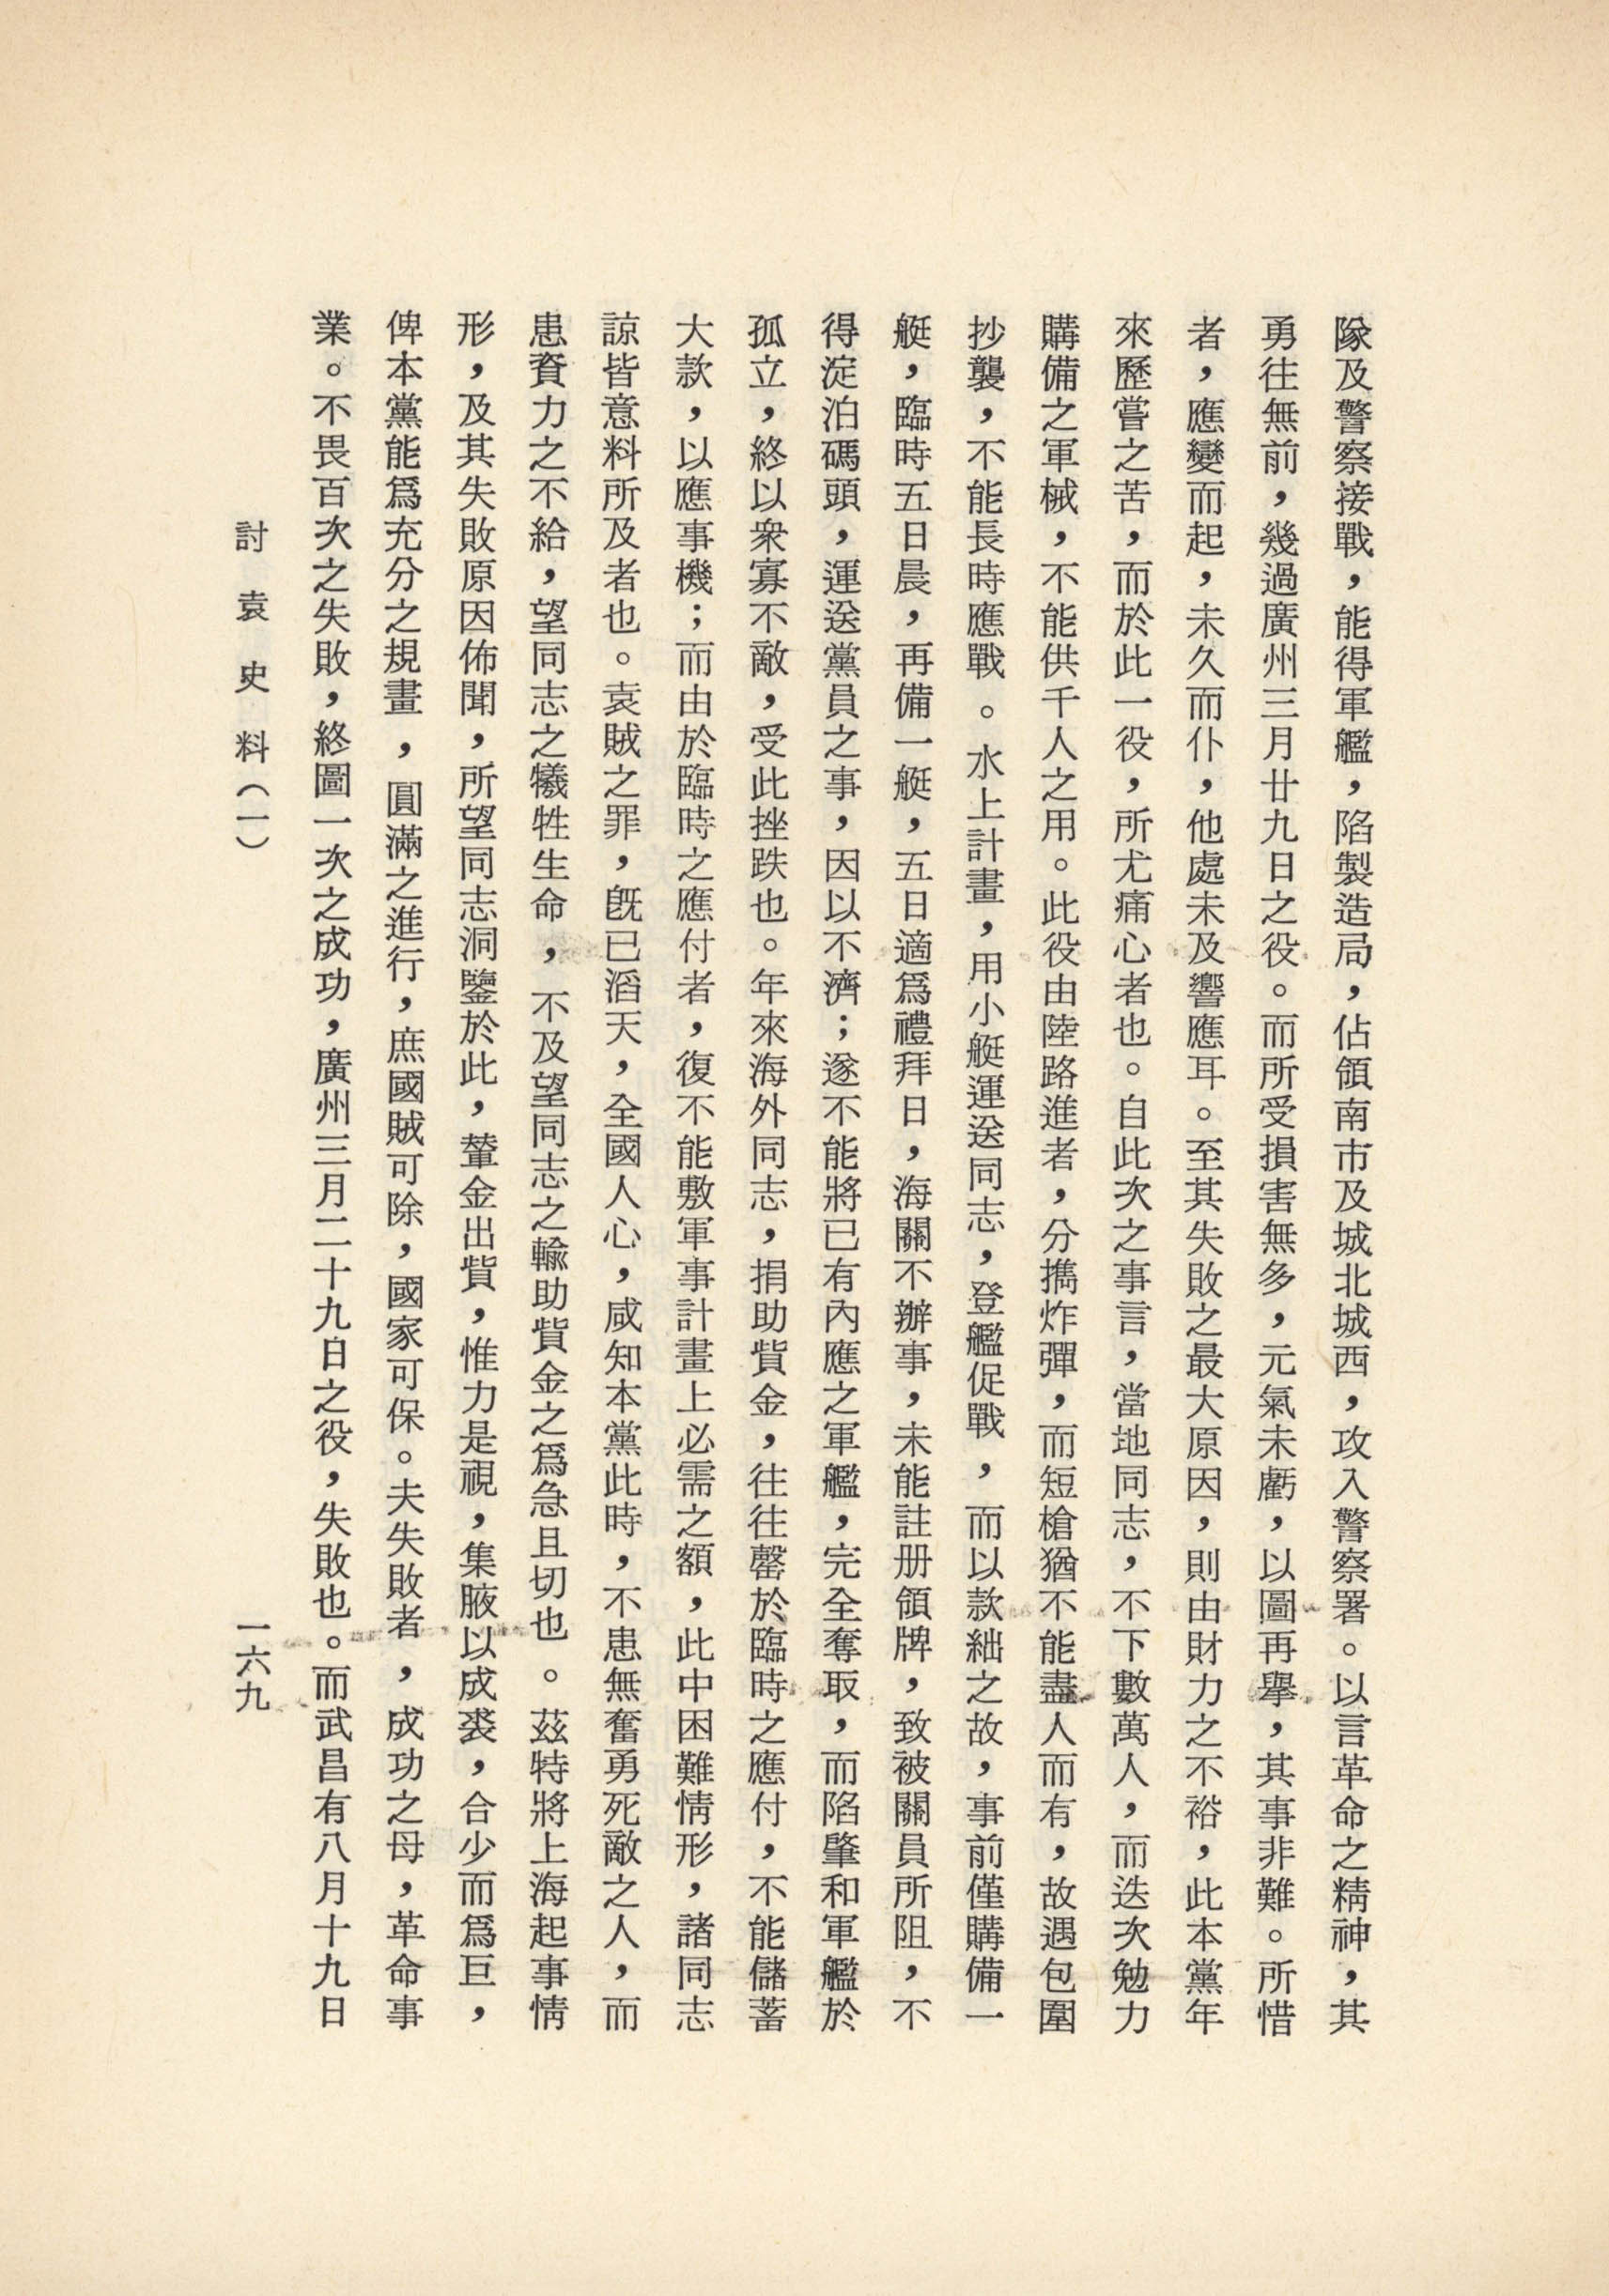 隊及警察接戰，能得軍艦，陷製造局，佔領南市及城北城西，攻入警察署。以言革命之精神，其
勇往無前，幾過廣州三月廿九日之役。而所受損害無多，元氣未虧，以圖再舉，其事非難。所惜
者，應變而起，未久而仆，他處未及響應耳。至其失敗之最大原因，則由財力之不裕，此本黨年
來歷嘗之苦，而於此一役，所尤痛心者也。自此次之事言，當地同志，不下數萬人，而迭次勉力
購備之軍械，不能供千人之用。此役由陸路進者，分攜炸彈，而短槍猶不能盡人而有，故遇包圍
抄襲，不能長時應戰。水上計畫，用小艇運送同志，登艦促戰，而以款絀之故，事前僅購備一
艇，臨時五日晨，再備一艇，五日適爲禮拜日，海關不辦事，未能註册領牌，致被關員所阻，不
得淀泊碼頭，運送黨員之事，因以不濟；遂不能將已有內應之軍艦，完全奪取，而陷肇和軍艦於
孤立，終以衆寡不敵，受此挫跌也。年來海外同志，捐助貲金，往往罄於臨時之應付，不能儲蓄
大款，以應事機；而由於臨時之應付者，復不能敷軍事計畫上必需之額，此中困難情形，諸同志
諒皆意料所及者也。袁賊之罪，旣已滔天，全國人心，咸知本黨此時，不患無奮勇死敵之人，而
患資力之不給，望同志之犧牲生命，不及望同志之輸助貲金之爲急且切也。茲特將上海起事情
形，及其失敗原因佈聞，所望同志洞鑒於此，輦金出貲，惟力是視，集腋以成裘，合少而爲巨，
俾本黨能爲充分之規畫，圓滿之進行，庶國賊可除，國家可保。夫失敗者，成功之母，革命事
業。不畏百次之失敗，終圖一次之成功，廣州三月二十九日之役，失敗也。而武昌有八月十九日
討袁史料（一）
一六九